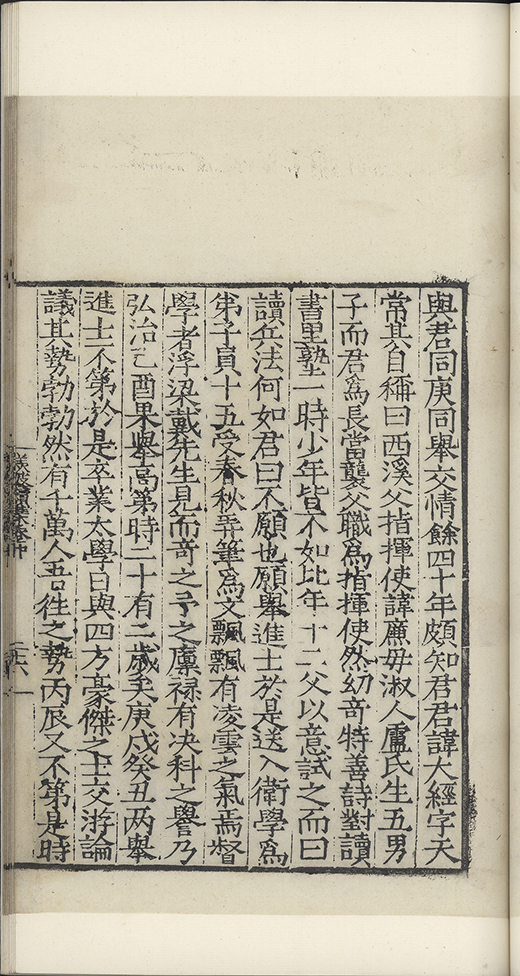 與君同庚同舉交情餘四十年頗知君君諱大經字天
常其自稱曰西溪父指揮使諱廉母淑人盧氏生五男
子而君爲長當襲父職爲指揮使然幼奇特善詩對讀
書里塾一時少年皆不如比年十二父以意試之而曰
讀兵法何如君曰不願也願舉進士於是送入衛學爲
弟子員十五受春秋弄筆爲文飄飄有凌雲之氣焉督
學者浮梁戴先生見而奇之予之廩祿有决科之譽乃
弘治己酉果舉高第時二十有二歲矣庚戌癸丑兩舉
進士不第於是卒業太學日與四方豪傑之士交游論
議其勢勃勃然有千萬人吾徃之勢丙辰又不第是時